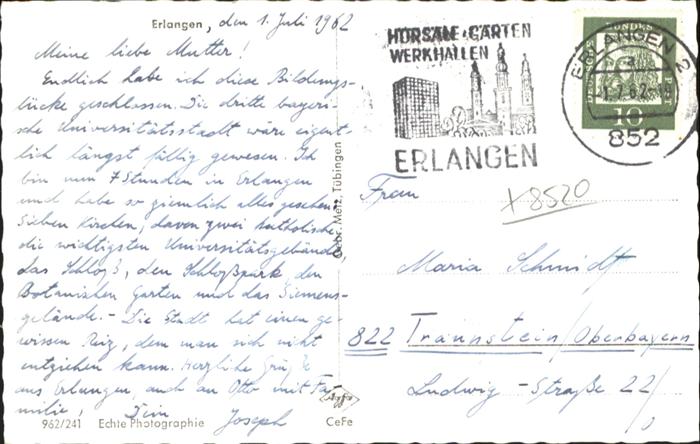 Erlangen, den 1. Juli 1962
Meine liebe Mutter!
Endlich habe ich diese Bildungs-
lücke geschlossen. Die dritte bayeri-
sche Universitätsstadt wäre eigent-
lich längst fällig gewesen. Ich
bin nun 7 Stunden in Erlangen
und habe so ziemlich alles gesehen:
Sieben Kirchen, davon zwei katholische,
die wichtigsten Universitätsgebäude,
das Schloß, den Schloßpark den
Botanischen Garten und das Siemens-
gelände. - Die Stadt hat einen ge-
wissen Reiz, dem man sich nicht
entziehen kann. Herzliche Grüße
aus Erlangen, auch an Otto mit Fa-
milie, Dein
Joseph
962/241 Echte Photographie
CeFe
Agfa
Gebr. Metz, Tübingen
HÖRSÄLE GÄRTEN
WERKHALLEN
ERLANGEN
ERLANGEN 2
a
-1.7.62-18
852
10
X 8520
Frau
Maria Schmidt
822 Traunstein/Oberbayern
Ludwig-Straße 22/0